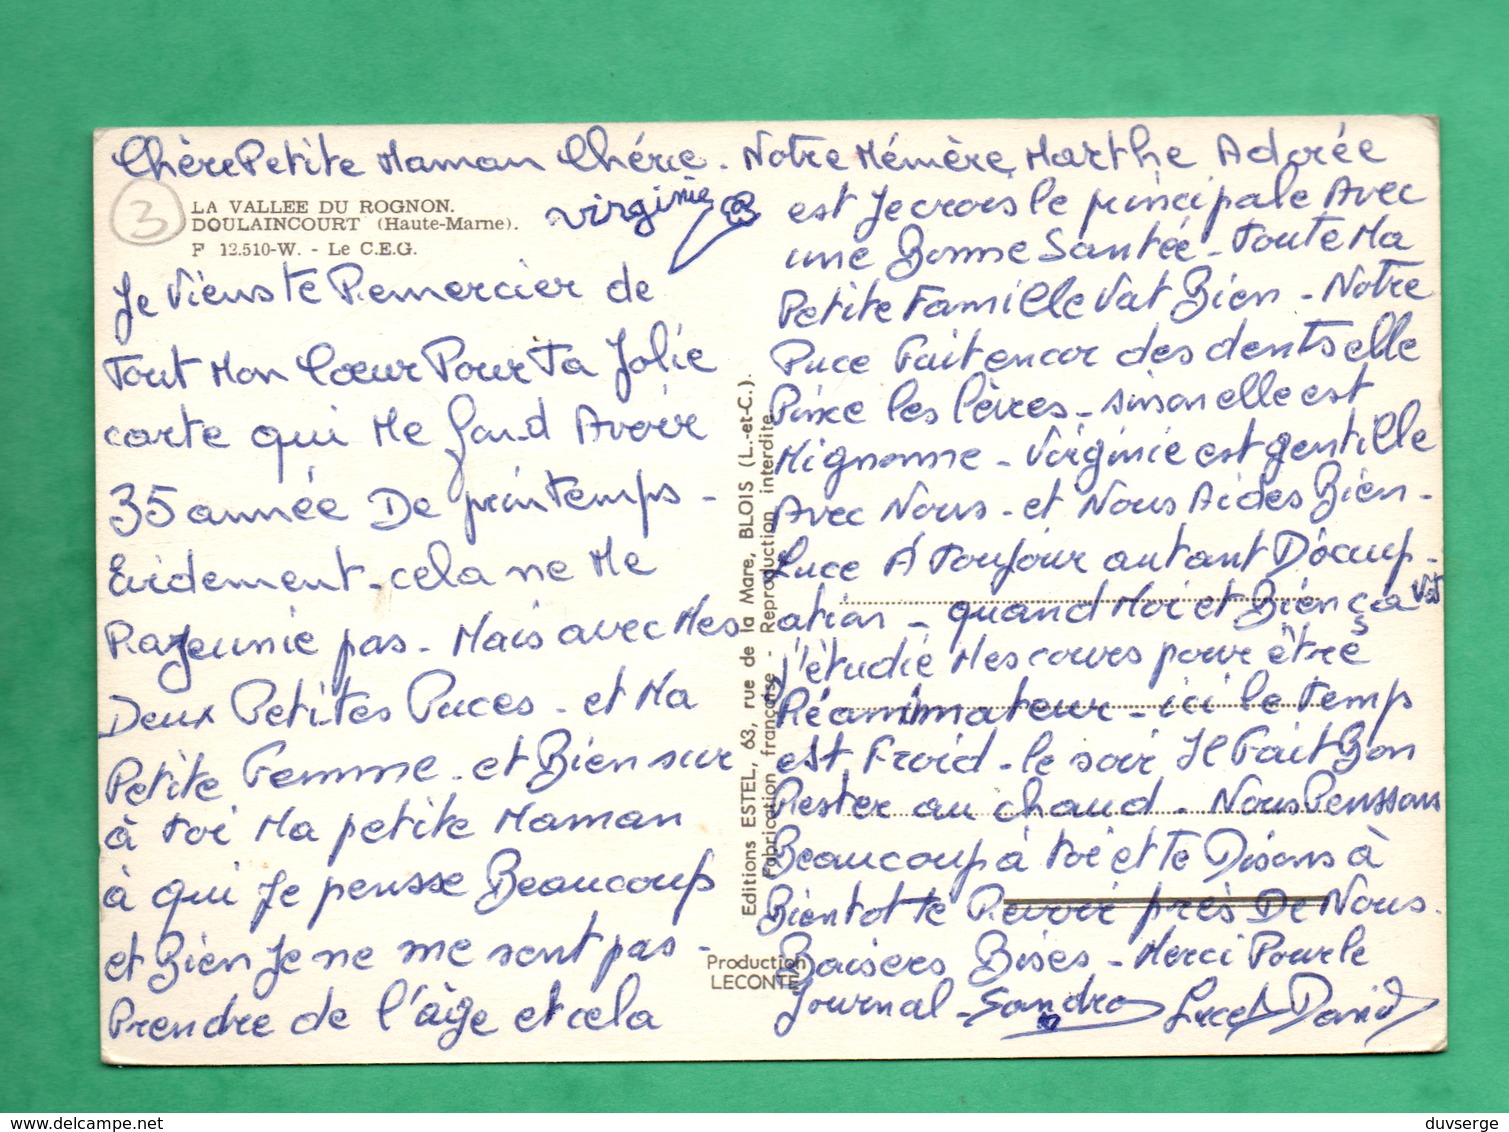 Chère Petite Maman Chérie. Notre Mémère Marthe Adorée
3
LA VALLEE DU ROGNON.
DOULAINCOURT (Haute-Marne).
F 12.510-W. - Le C.E.G.
virginie
Je Viens te Remercier de
Tout Mon Cœur Pour Ta Jolie
carte qui Me fand Avoir
35 année De printemps -
Evidement - cela ne Me
Rajeunie pas - Mais avec Mes
Deux Petites Puces - et Ma
Petite Femme - et Bien sur
à toi Ma petite Maman
à qui Je pensse Beaucoup
et Bien Je ne me sent pas -
Prendre de l'âge et cela
est Je crois le principale Avec
une Bonne Santée - toute Ma
Petite Famille Vat Bien - Notre
Puce Fait encor des dents elle
Pince les lèvres - sinon elle est
Mignonne - Virginie est gentille
Avec Nous - et Nous Aides Bien -
Luce A Toujour autant D'ocup -
ation - quand Moi et Bien ça Vat
j'étudie Mes cours pour être
Réanimateur - ici le temps
est Froid - le soir Il Fait Bon
Rester au chaud - Nous Penssons
Beaucoup à toi et te Disons à
Bientot te Revoir près De Nous.
Baisers Bises - Merci Pour le
Journal - Sandra Luce David
Editions ESTEL, 63, rue de la Mare, BLOIS (L.-et-C.).
Fabrication française - Reproduction interdite
Production
LECONTE
duvserge